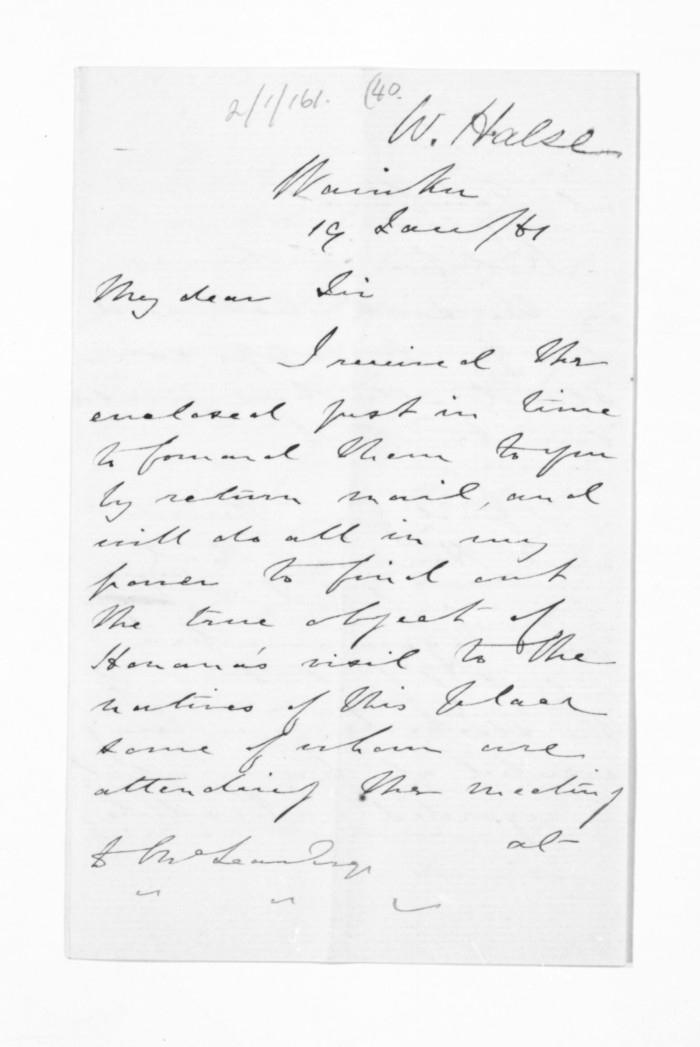 2/1/161. (40.
W. Halse
Waiuku
19 Jany/61
My dear Sir
I received the
enclosed just in time
to forward them to you
by return mail, and
will do all in my
power to find out
the true object of
Honana's visit to the
natives of this place
some of whom are
attending the meeting
at
D McLean Esqr
" " "